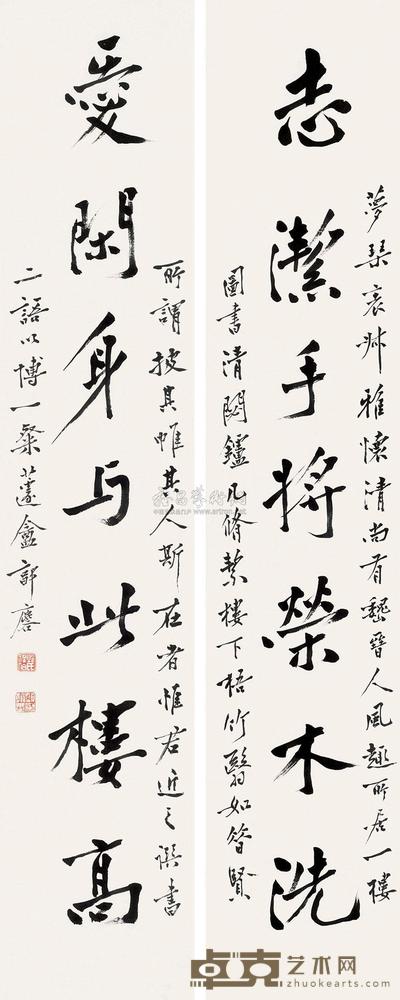 夢琹雅懷清尚有魏晉人風趣所居一樓
志潔手將榮木洗
圖書清閟鑪几脩絜樓下梧竹翳如昔賢
所謂披其帷其人斯在者惟君近之撰書
愛閑身与此樓高
二語以博一粲蘧盦郭麐
卓克艺术网
zhuokearts.com